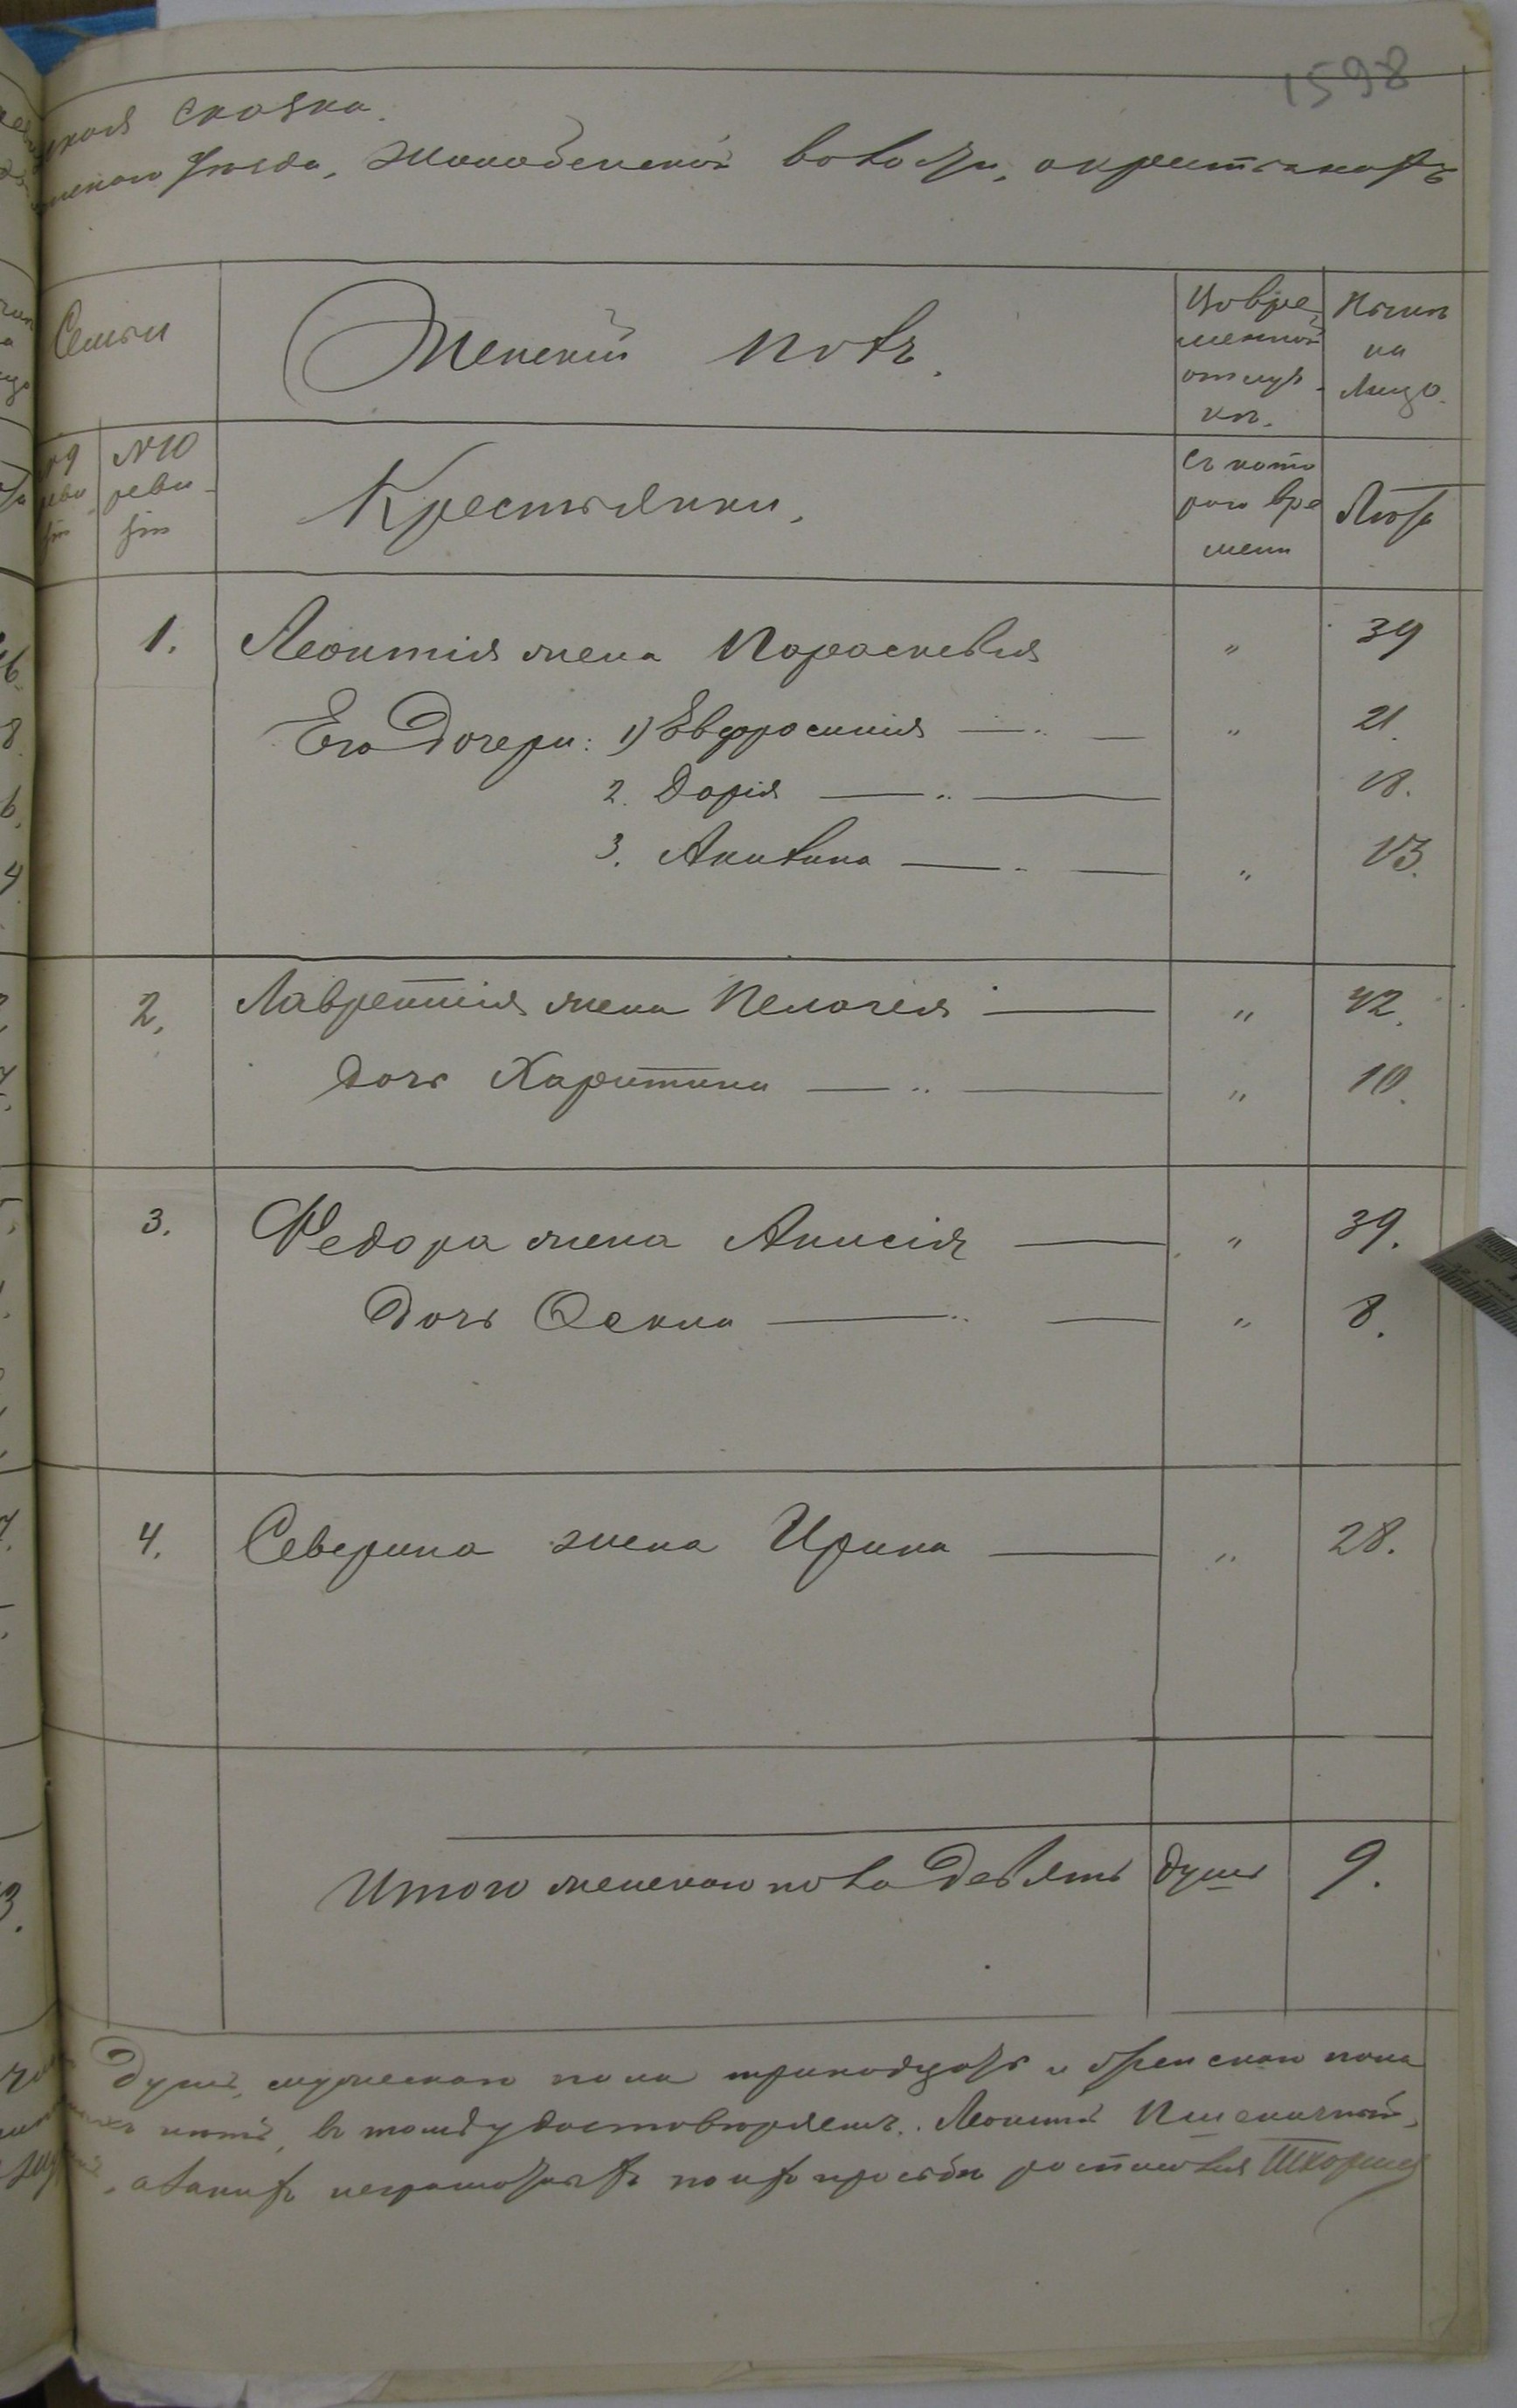 1598
сказка.
уезда, волости, о крестьянахъ
Семьи
Женскій полъ.
Во вре
менной
отлуч
кѣ.
Нынѣ
на
лицо.
№9
реви
зіи
№10
реви
зіи
Крестьянки,
Съ кото
раго вре
мени
Лѣта
1. Леонтія жена Параскевія " 39
Его Дочери: 1) Евфросинія — " — " 21.
2. Дарія — " — 18.
3. Акилина — " — " 13.
2. Лаврентія жена Пелагея — " 42.
дочь Харитина — " — " 10.
3. Федора жена Анисія — " 39.
Дочь Фекла — " — " 8.
4. Северина жена Ирина — " 28.
Итого женскаго пола Девять душъ 9.
Душъ, мужескаго пола тринадцать и женскаго пола
нѣтъ, въ томъ удостовѣряемъ. Леонтій Пшеничный,
, а за нихъ неграмотныхъ по ихъ просьбѣ росписался